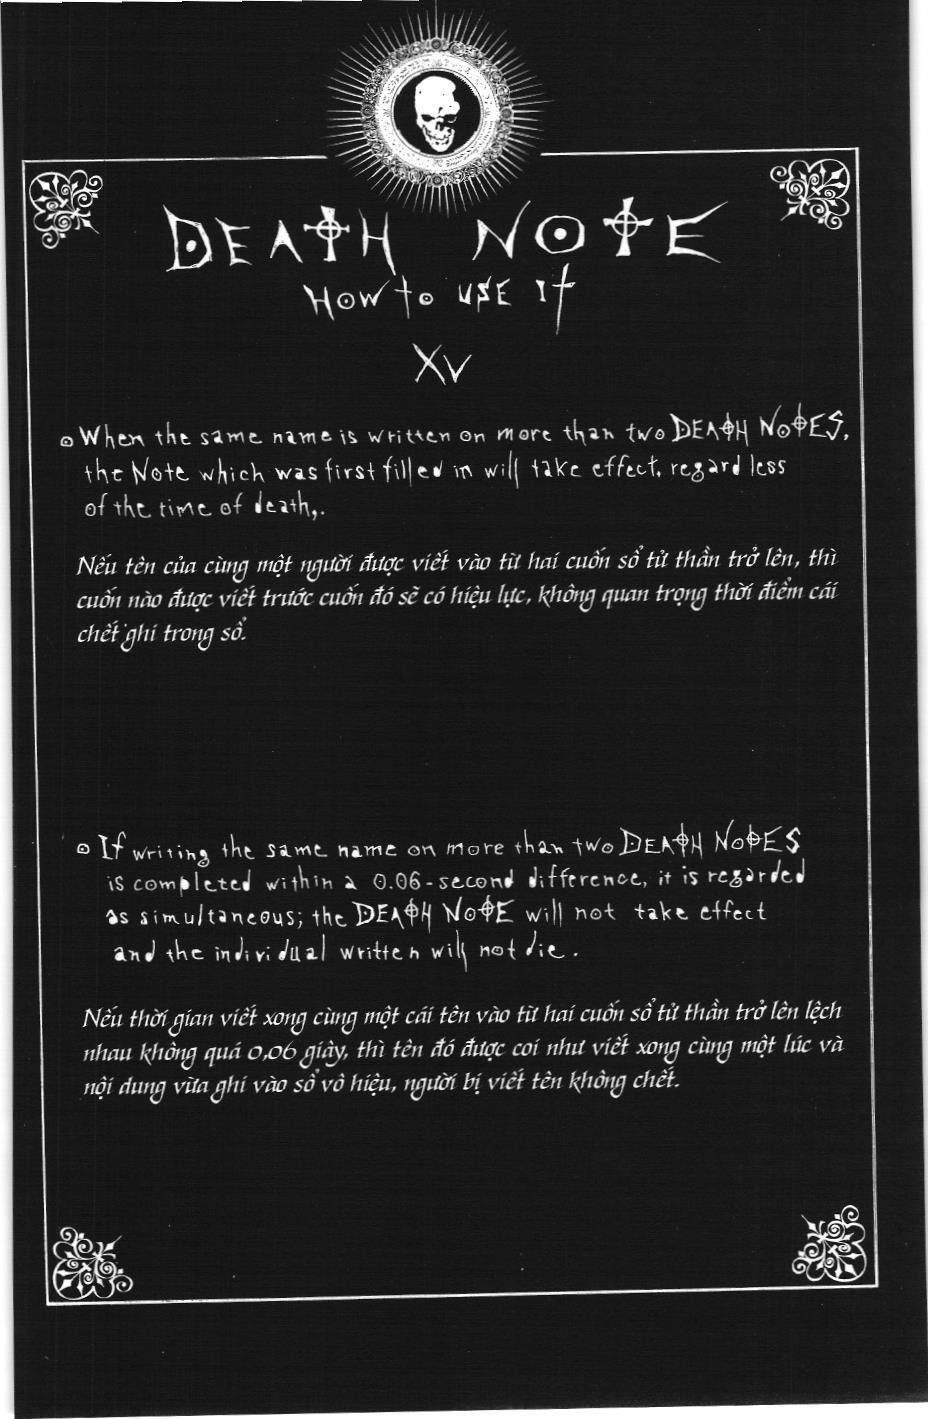 DEATH NOTE
HOW to USE It
XV
When the same name is written on more than two DEATH NOTES,
the Note which was first filled in will take effect, regard less
of the time of death,.
Nếu tên của cùng một người được viết vào từ hai cuốn sổ tử thần trở lên, thì
cuốn nào được viết trước cuốn đó sẽ có hiệu lực, không quan trọng thời điểm cái
chết ghi trong sổ.
If writing the same name on more than two DEATH NOTES
is completed within a 0.06-second difference, it is regarded
as simultaneous; the DEATH NOTE will not take effect
and the individual written will not die.
Nếu thời gian viết xong cùng một cái tên vào từ hai cuốn sổ tử thần trở lên lệch
nhau không quá 0,06 giây, thì tên đó được coi như viết xong cùng một lúc và
nội dung vừa ghi vào sổ vô hiệu, người bị viết tên không chết.